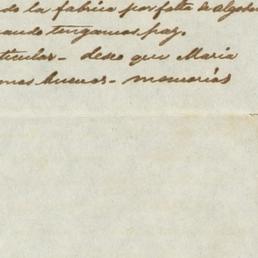 do la fabrica por falta de algodo
uando tengamos paz.
ticular - deseo que Maria
mas buenos - memorias